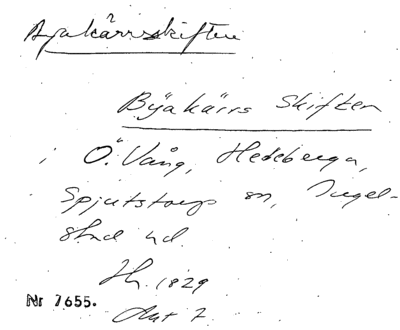 Byakärrsskiften
Byakärrs skiften
i Ö. Vång, Hedeberga,
Spjutstorps sn, Ingel-
stad hd.
1829
Nr 7655. Akt 7